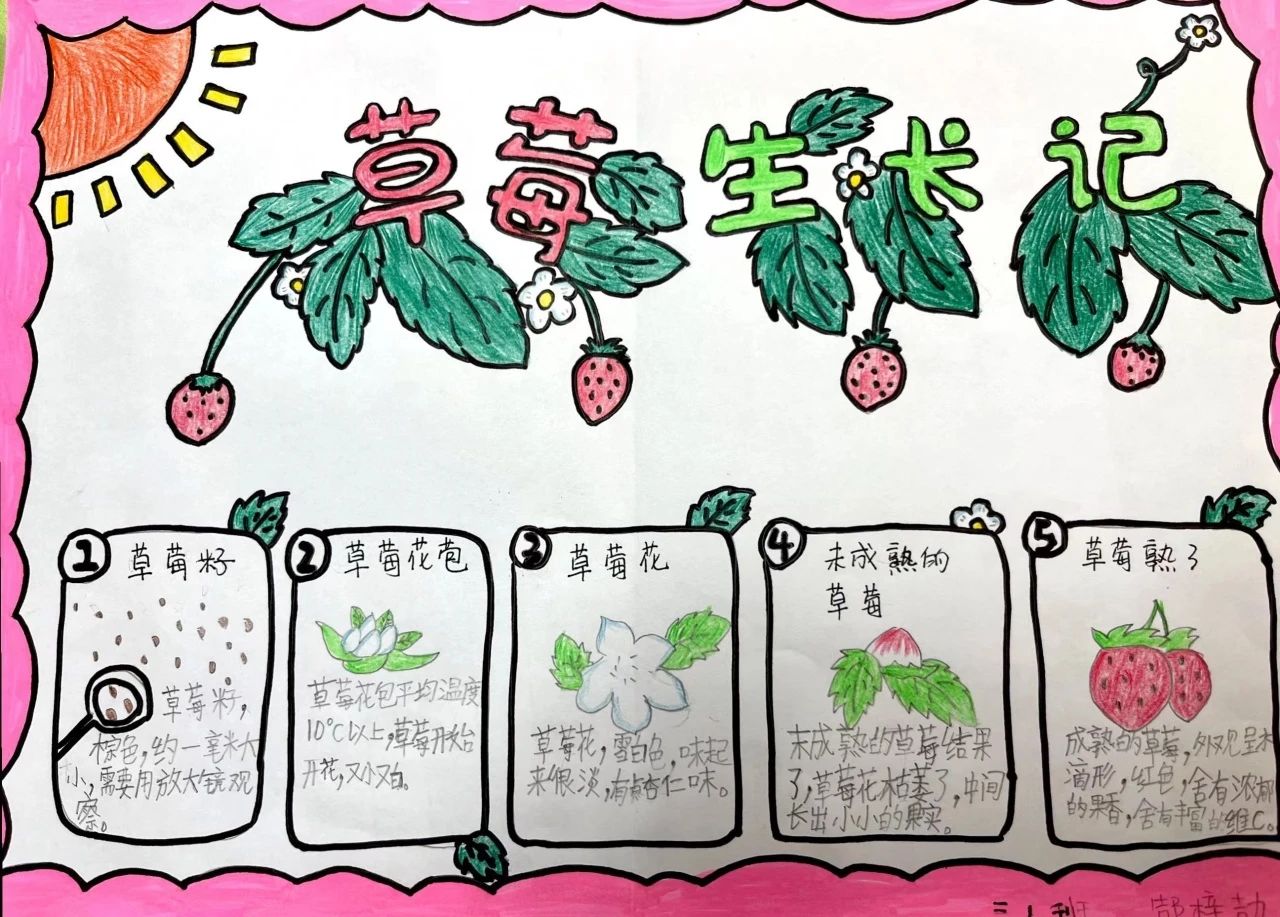 草莓生长记
1 草莓籽
草莓籽，
棕色，约一毫米大
小，需要用放大镜观
察。
2 草莓花苞
草莓花包平均温度
10°C以上，草莓开始
开花，又小又白。
3 草莓花
草莓花，雪白色，味起
来很淡，有点杏仁味。
4 未成熟的
草莓
未成熟的草莓结果
了，草莓花枯萎了，中间
长出小小的果实。
5 草莓熟了
成熟的草莓，外观呈水
滴形，红色，含有浓郁
的果香，含有丰富的维C。